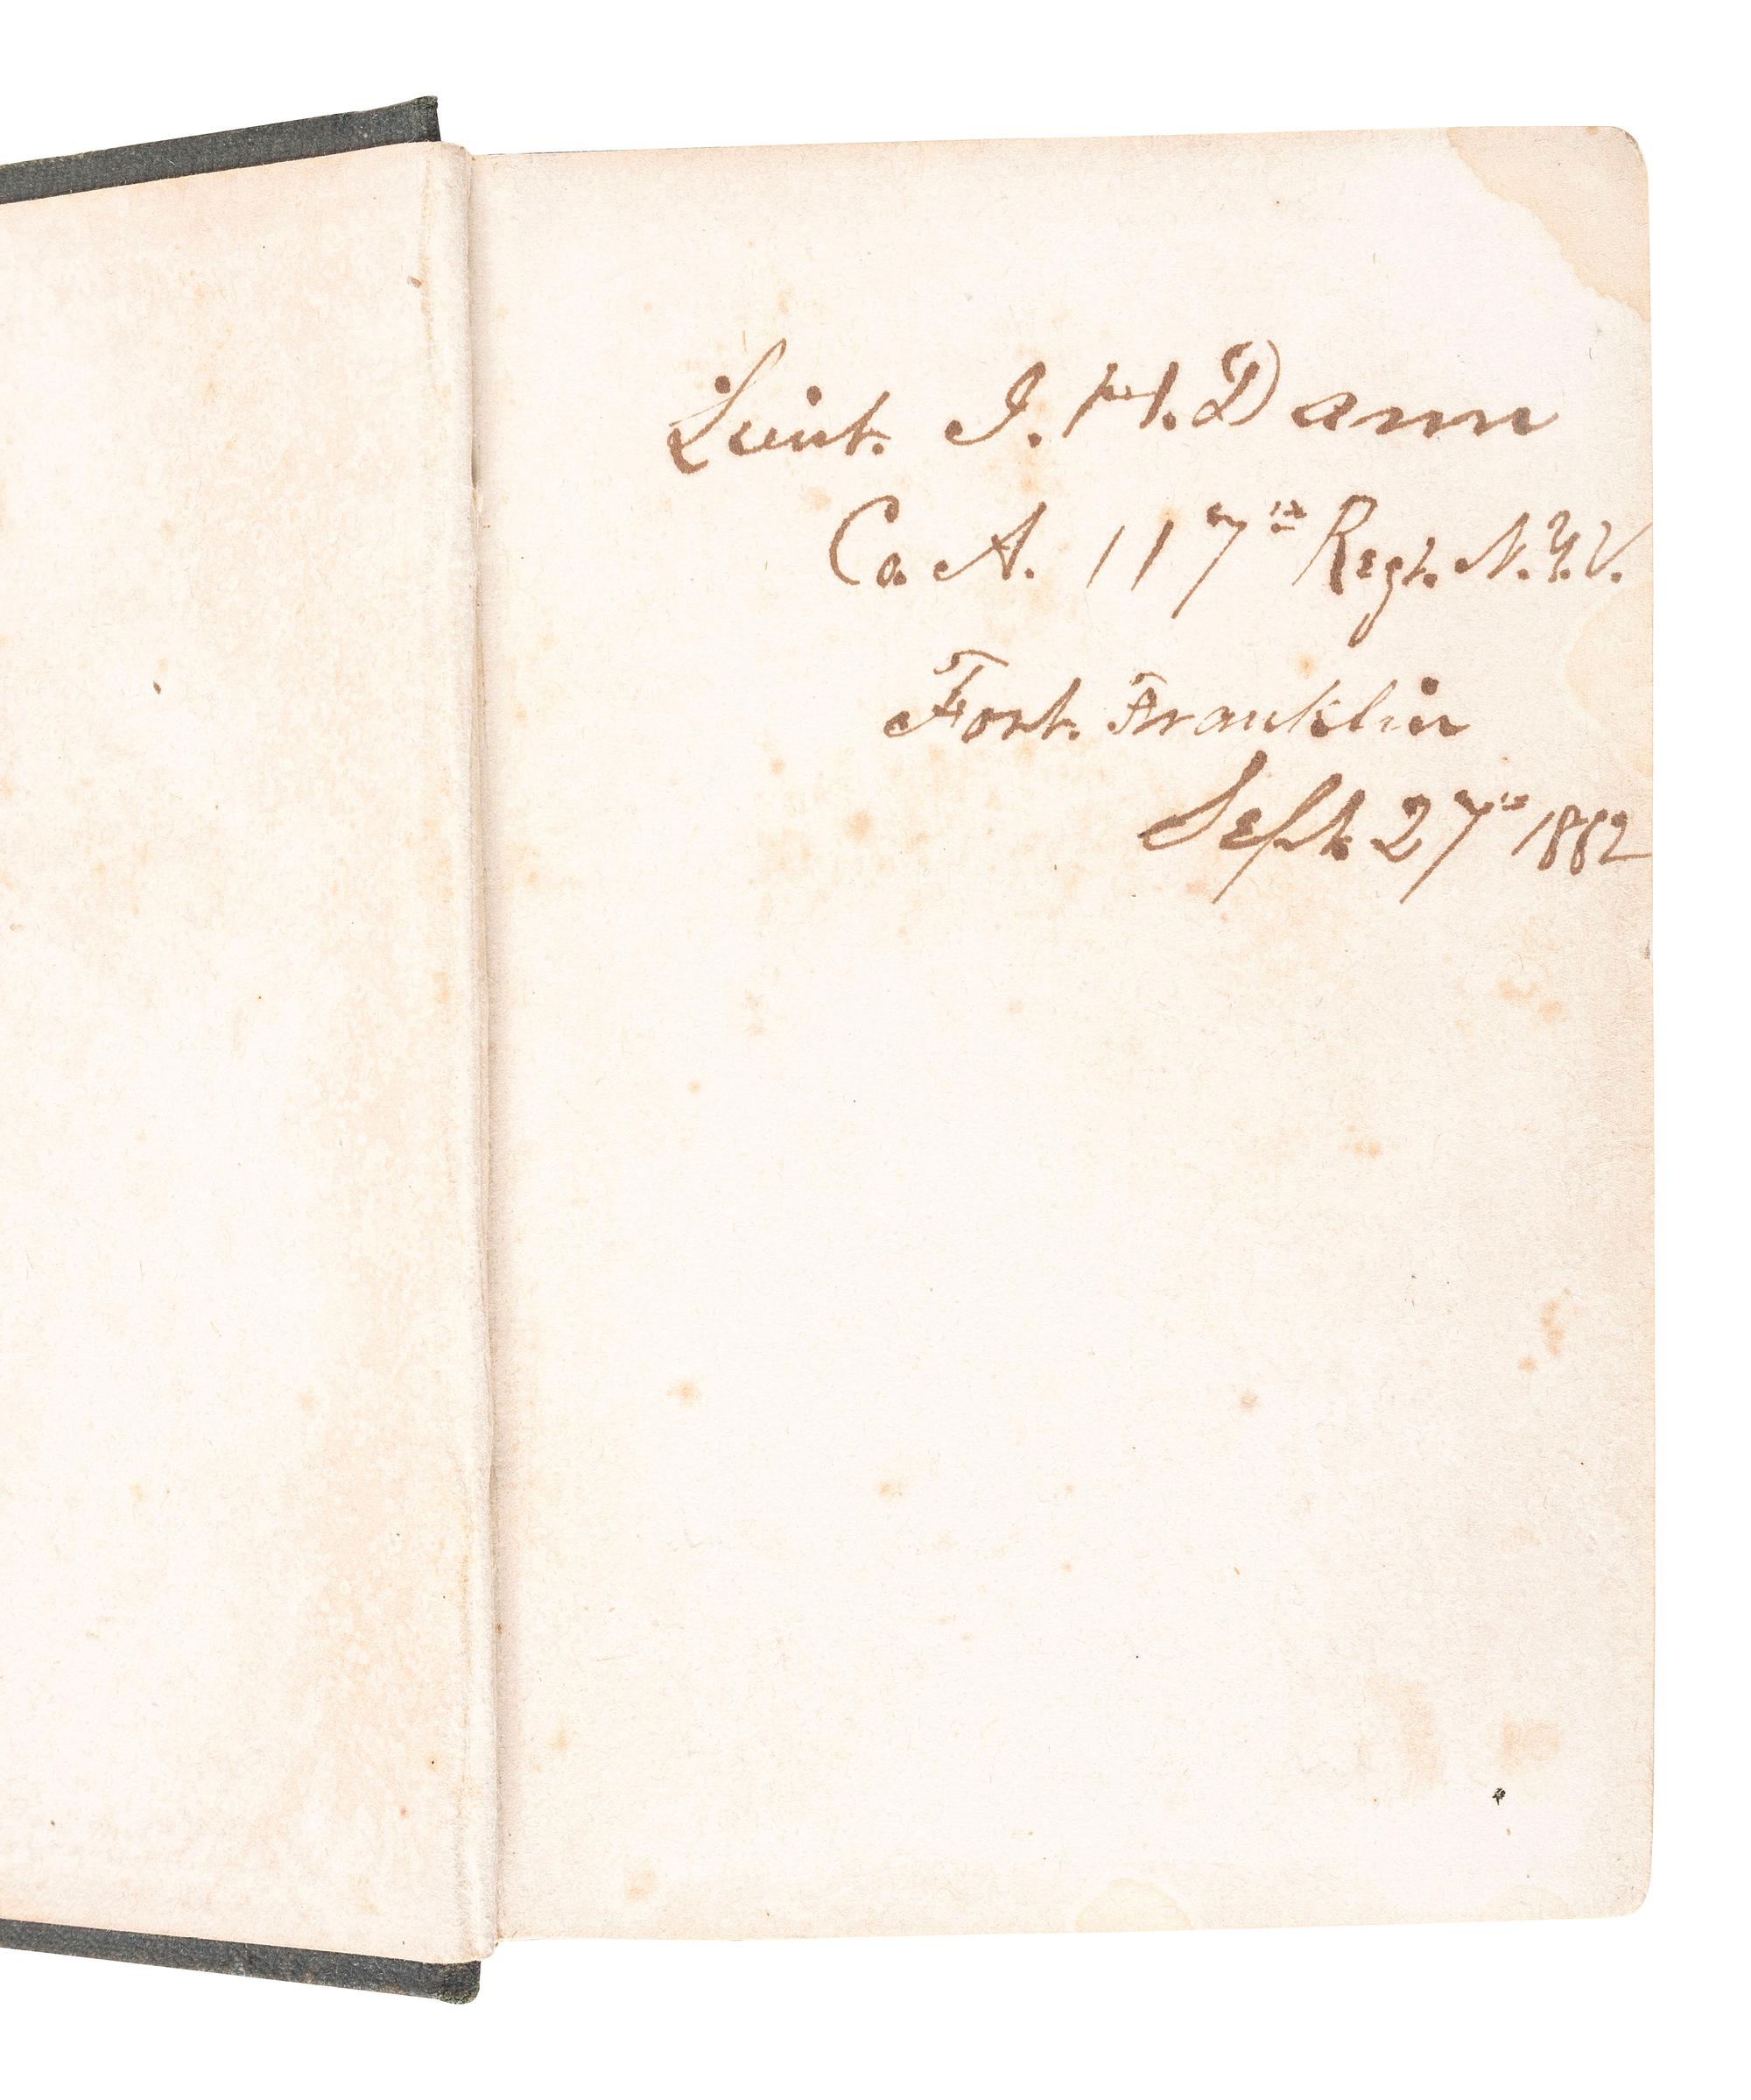 Lieut. J. H. Dann
Co. A. 117th Regt. N.Y.V.
Fort. Franklin
Sept. 27th 1862